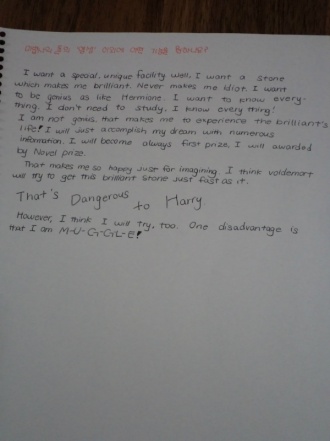 I want a special, unique facility. Well, I want a stone
which makes me brilliant. Never makes me idiot. I want
to be genius as like Hermione. I want to know every-
thing. I don't need to study, I know every thing!
I am not genius, that makes me to experience the brilliant's
life! I will just accomplish my dream with numerous
information. I will become always first prize. I will awarded
by Novel prize.
That makes me so happy just for imagining. I think voldemort
will try to get this brilliant stone just fast as it.
That's Dangerous to Harry
However, I think I will try, too. One disadvantage is
that I am M-U-G-G-L-E!